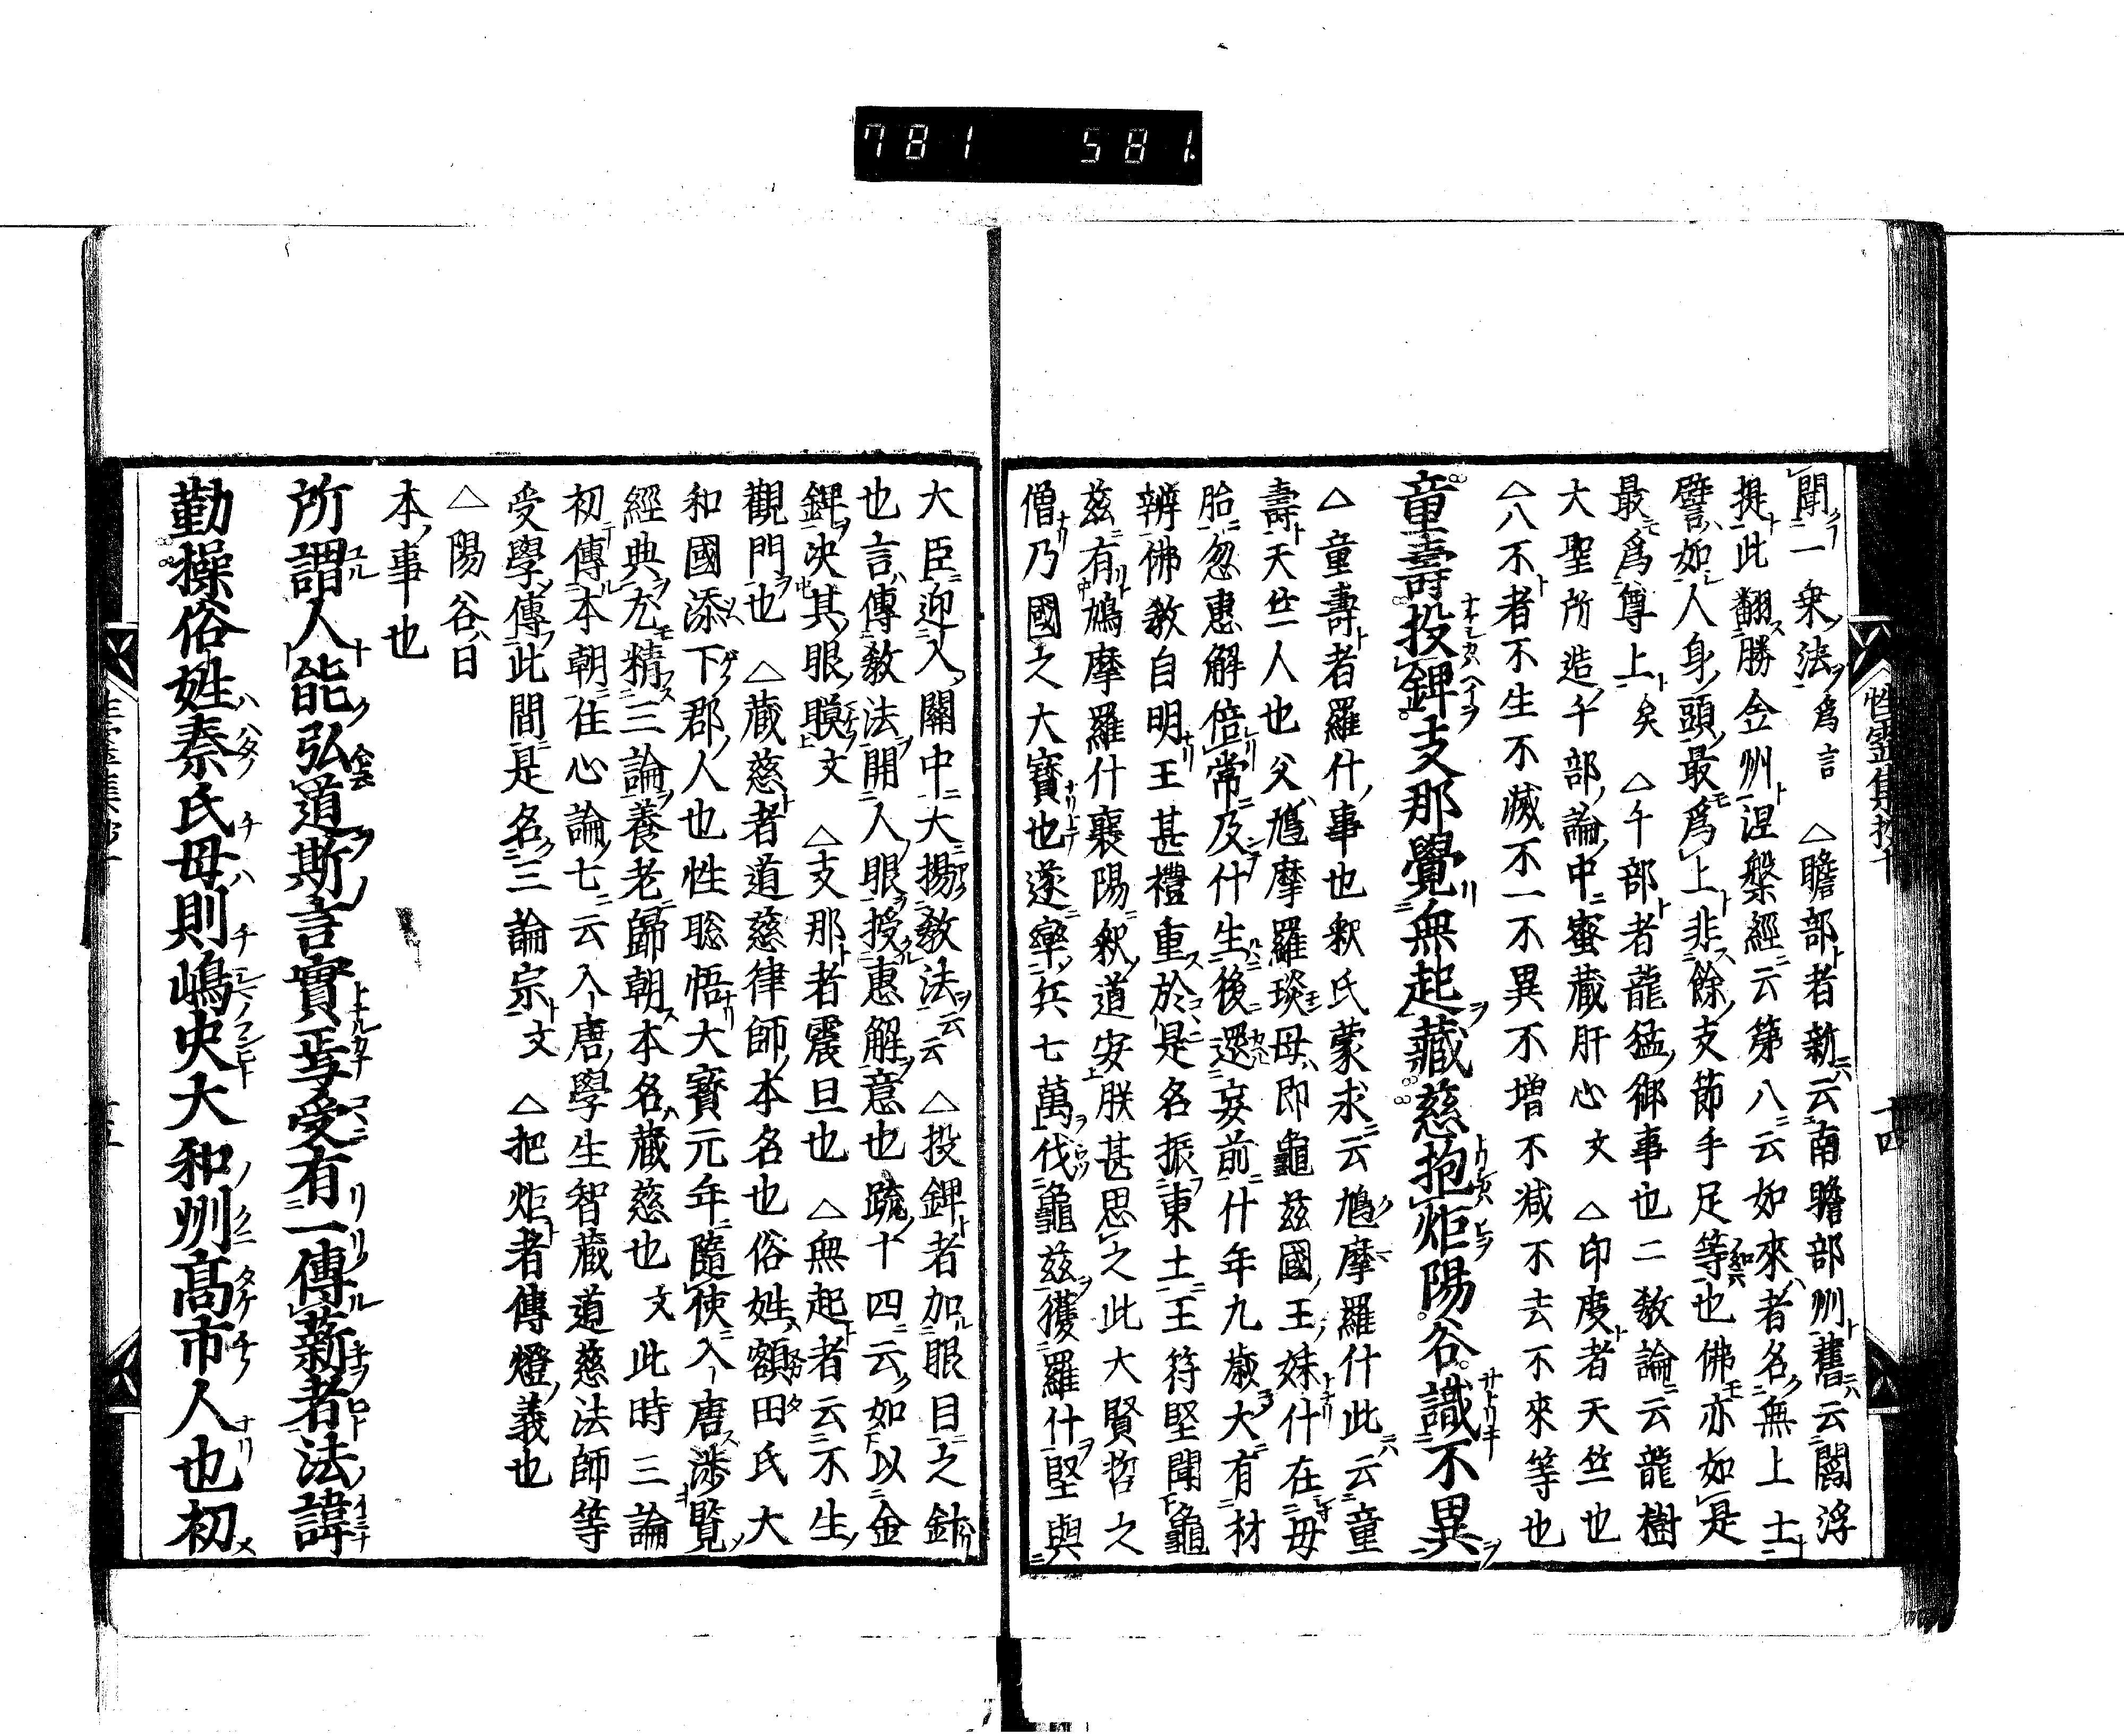 781 581
性霊集抄十
十四
聞一乗法為言 △贍部者新云南贍部州舊云閻浮
提此翻勝金州 涅槃經云第八云如來者名無上士
譬如人身頭最為上非餘支節手足等也佛亦如是
最為尊上矣 △千部者龍猛御事也二教論云龍樹
大聖所造千部論中蜜藏肝心文 △印度者天竺也
△八不者不生不滅不一不異不增不減不去不來等也
童壽投錍支那覺無起藏慈抱炬陽谷識不異
△童壽者羅什事也釈氏蒙求云鳩摩羅什此云童
壽天竺人也父鳩摩羅琰母即龜茲國王妹什在母
胎忽惠解倍常及什生後還妄前什年九歳大有材
辨佛教自明王甚禮重於是名振東土王苻堅聞龜
茲有鳩摩羅什襄陽釈道安朕甚思之此大賢哲之
僧乃國之大寶也遂率兵七萬伐龜茲獲羅什堅與
大臣迎入關中大揚教法云云 △投錍者加眼目之針
也言傳教法開人眼授惠解意也䟽十四云如以金
錍决其眼膜文 △支那者震旦也 △無起者云不生
觀門也 △藏慈者道慈律師本名也俗姓額田氏大
和國添下郡人也性聡悟大寶元年隨使入唐渉覽
經典尤精三論養老歸朝本名藏慈也文此時三論
初傳本朝住心論七云入唐學生智藏道慈法師等
受學傳此間是名三論宗文 △把炬者傳燈義也
△陽谷日
本事也
所謂人能弘道斯言實焉受有一傳薪者法諱
勤操俗姓秦氏母則嶋史大和州髙市人也初